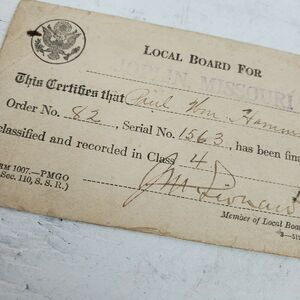 LOCAL BOARD FOR
JOPLIN, MISSOURI
This Certifies that Paul Wm
Order No. 82, Serial No. 1563, has been
classified and recorded in Class 4
1007.—PMGO
Sec. 110, S. S. R.)
Member of Local